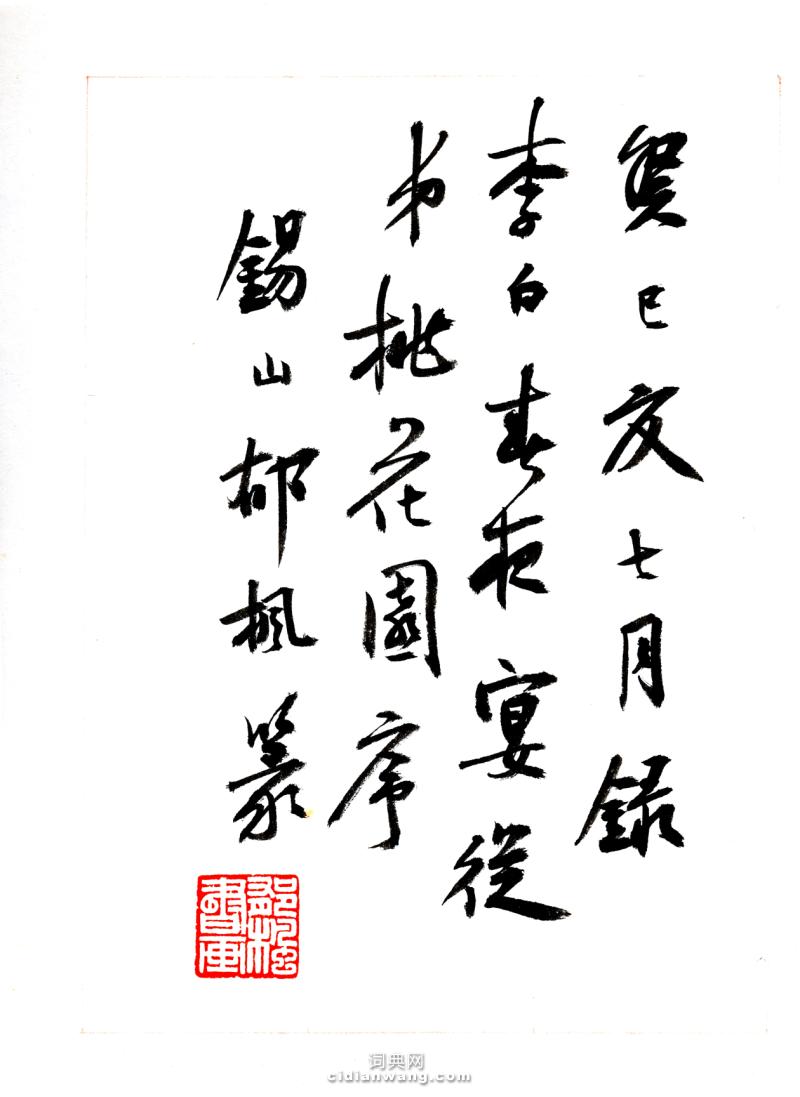 癸巳夏七月錄
李白春夜宴從
弟桃花園序
錫山郁楓篆
词典网
cidianwang.com